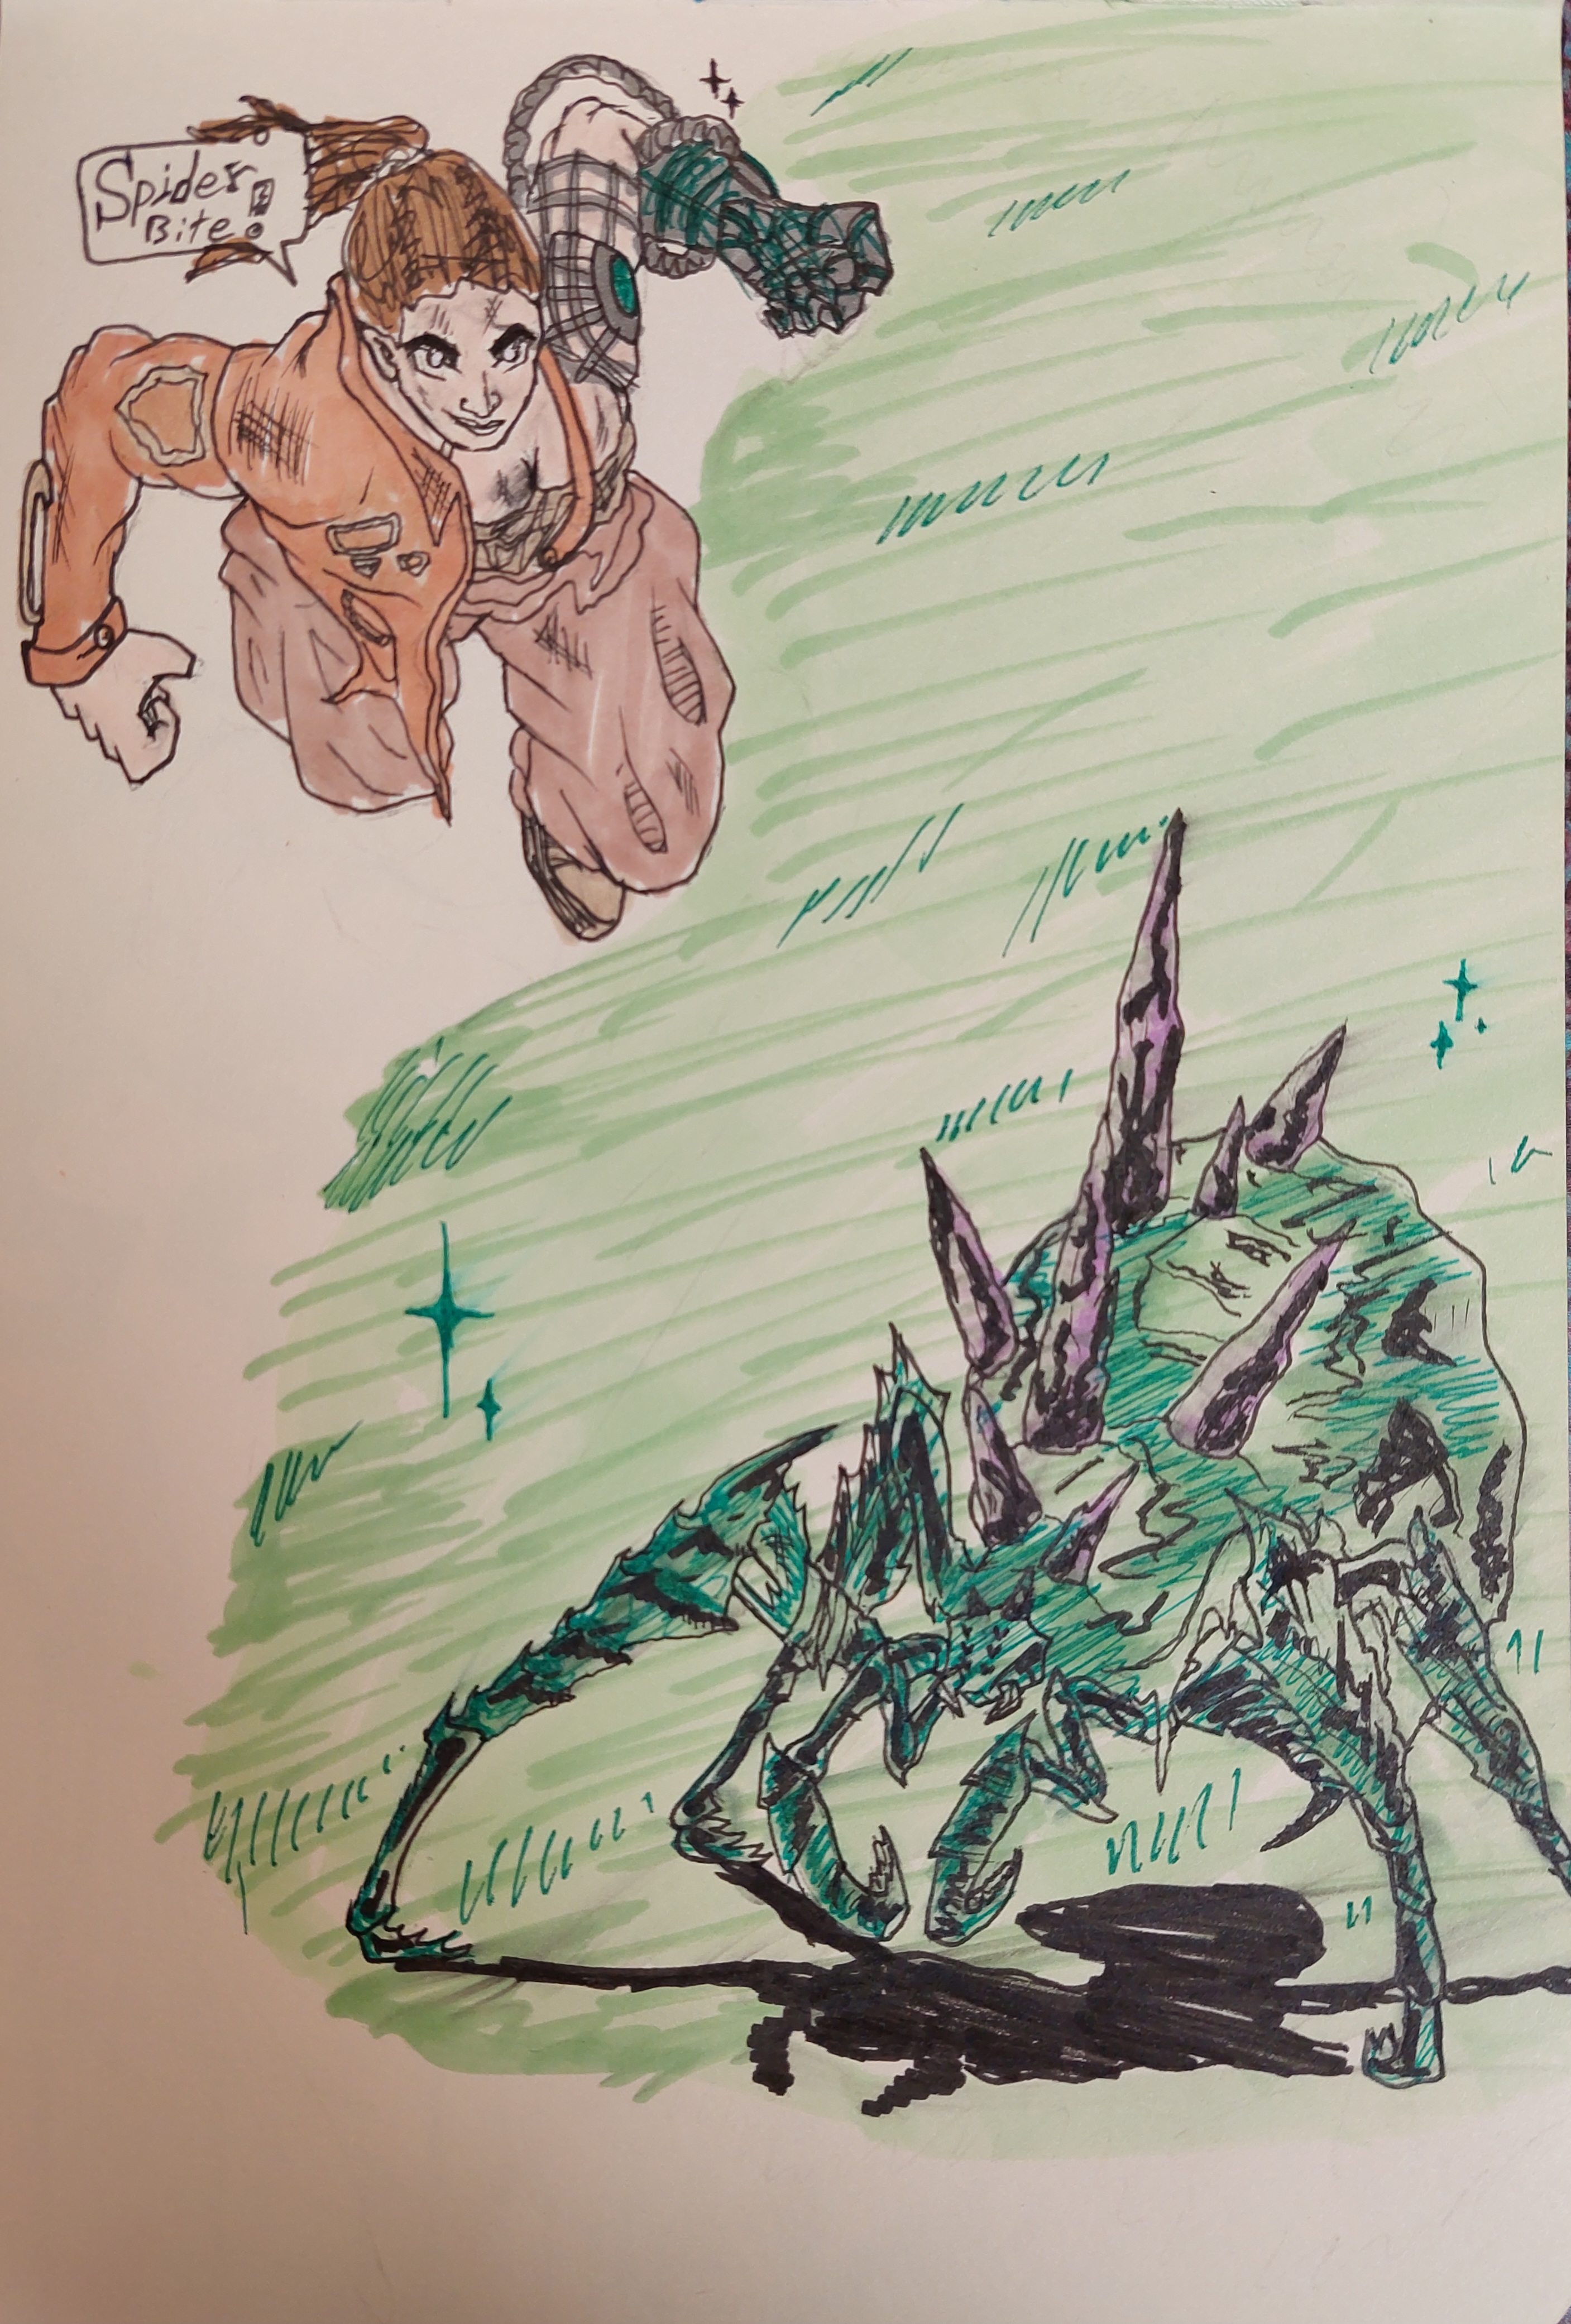 Spider
Bite!